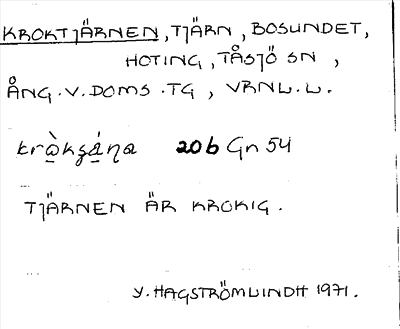 KROKTJÄRNEN, TJÄRN, BOSUNDET,
HOTING, TÅSJÖ SN,
ÅNG. V. DOMS. TG, VRNL. L.
20b Gn 54
TJÄRNEN ÄR KROKIG.
Y. HAGSTRÖMLINDH 1971.